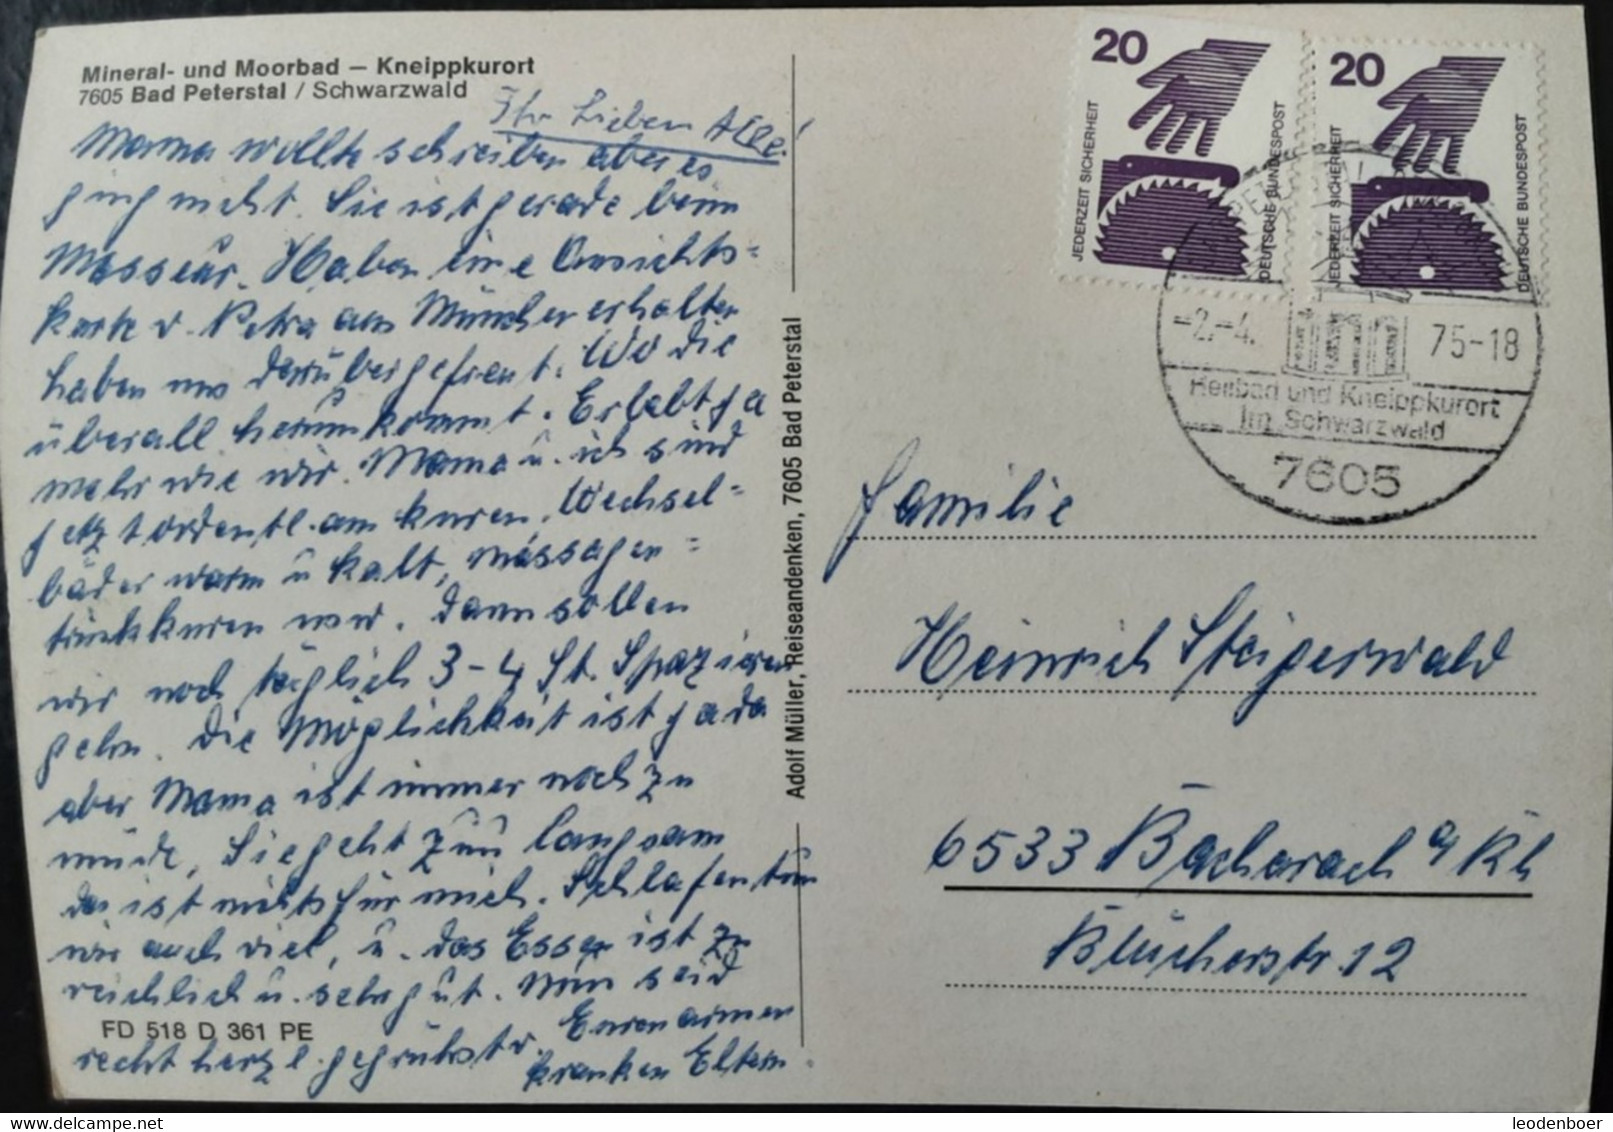 Mineral- und Moorbad – Kneippkurort
7605 Bad Peterstal / Schwarzwald
Ihr Lieben Alle!
Mama wollte schreiben aber es
ging nicht. Sie ist gerade beim
Masseur. Haben eine Ansichts=
karte v. Petra aus München erhalten
haben uns darüber gefreut. Wo die
überall herumkommt. Erlebt ja
mehr wie wir. Mama u. ich sind
jetzt ordentl. am kuren. Wechsel=
bäder warm u kalt, Massagen=
trinkkuren usw. Dann sollen
wir noch täglich 3-4 St. Spazieren
gehn. Die Möglichkeit ist ja da
aber Mama ist immer noch zu
müde, Sie geht zu langsam
das ist nichts für mich. Schlafen tun
wir auch viel, u. das Essen ist zu
reichlich u. sehr gut. Nun seid
recht herzl. gegrüßt v. Euren armen
kranken Eltern
FD 518 D 361 PE
Adolf Müller, Reiseandenken, 7605 Bad Peterstal
20
JEDERZEIT SICHERHEIT
DEUTSCHE BUNDESPOST
20
JEDERZEIT SICHERHEIT
DEUTSCHE BUNDESPOST
-2.-4.
75-18
Heilbad und Kneippkurort
im Schwarzwald
7605
Familie
Heinrich Steigerwald
6533 Bacharach a/Rh
Blücherstr. 12
leodenboer